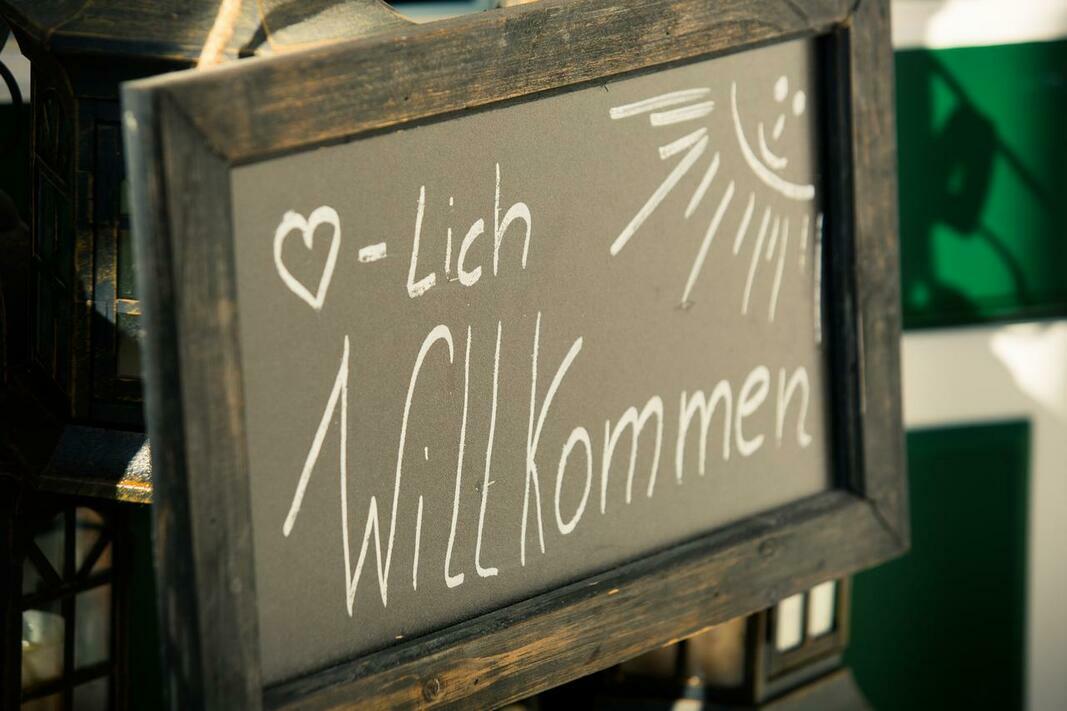 ♡-Lich
Willkommen